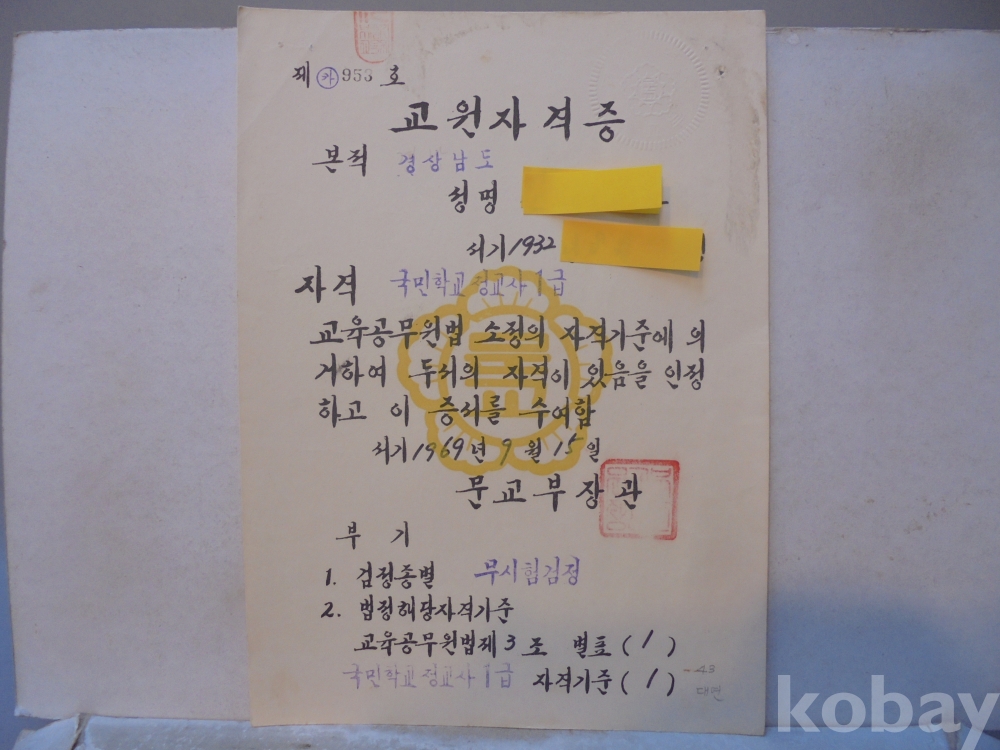 제 ㉸ 953 호
교원자격증
본적 경상남도
성명
서기 1932
자격 국민학교 정교사 1급
교육공무원법 소정의 자격기준에 의
거하여 두서의 자격이 있음을 인정
하고 이 증서를 수여함
서기 1969년 9월 15일
문교부장관
부 기
1. 검정종별 무시험검정
2. 법정해당자격기준
교육공무원법제3조 별표 (1)
국민학교 정교사 1급 자격기준 (1)
-43
대연
kobay